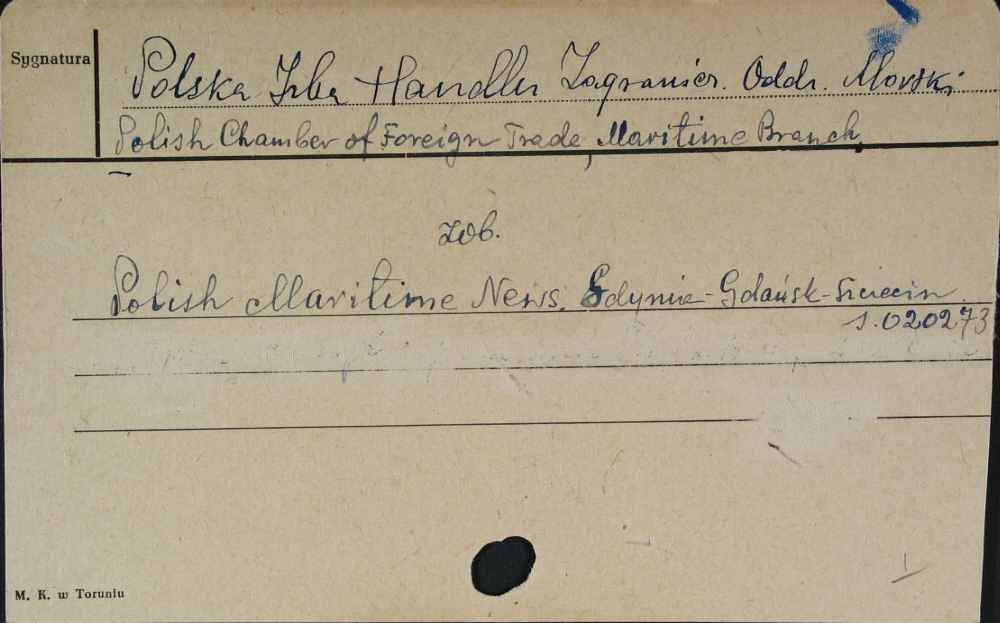 Sygnatura
Polska Izba Handlu Zagranicz. Oddz. Morski
Polish Chamber of Foreign Trade, Maritime Branch,
zob.
Polish Maritime News. Gdynia-Gdańsk-Szczecin
s.020273
M. K. w Toruniu